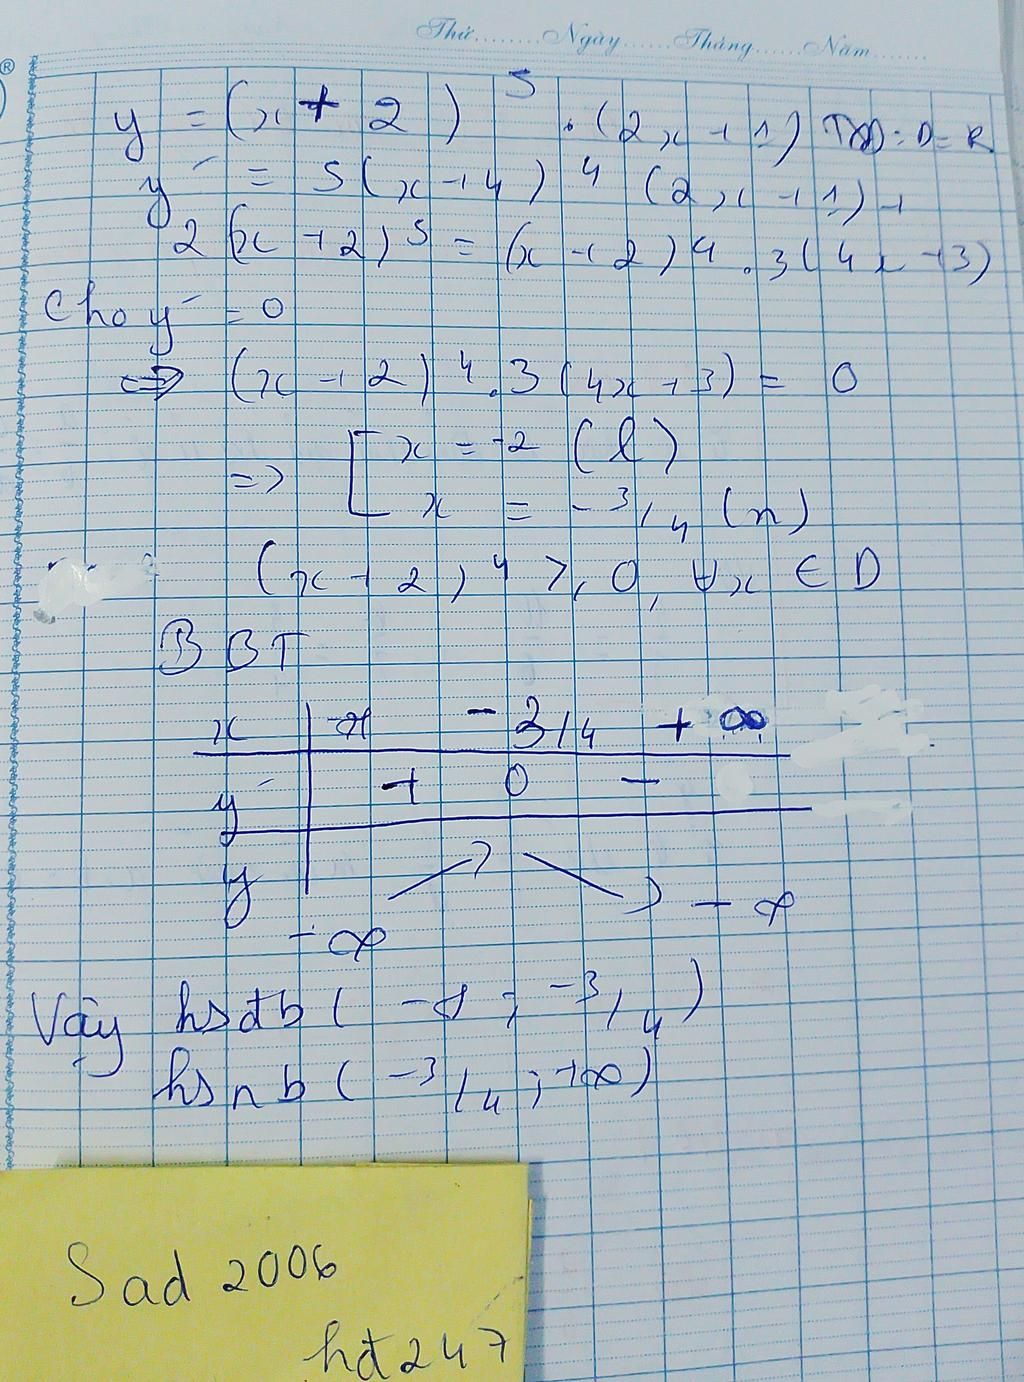 Thứ........Ngày......Tháng......Năm.......
®
y = (x + 2)⁵ . (2x + 1) TXD: D = R
y' = 5(x + 4)⁴ (2x + 1) +
2(x + 2)⁵ = (x + 2)⁴ . 3(4x + 3)
Cho y' = 0
<=> (x + 2)⁴ . 3(4x + 3) = 0
=> [ x = -2 (l)
x = -3/4 (n)
(x + 2)⁴ ≥ 0, ∀x ∈ D
BBT
x | -∞ -3/4 +∞
y' | + 0 -
y | ↗ ↘ -∞
-∞
Vậy hsđb (-∞ ; -3/4)
hsnb (-3/4 ; +∞)
Sad 2006
hđ247